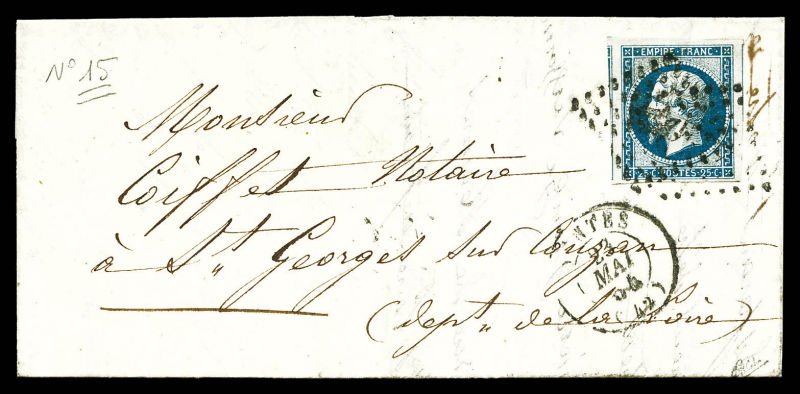 N° 15
EMPIRE FRANC
25 C POSTES 25 C
Monsieur
Coiffet Notaire
à St„ Georges sur Couzan
(dept„ de la Loire)
NTES
23
MAI
54
(42)